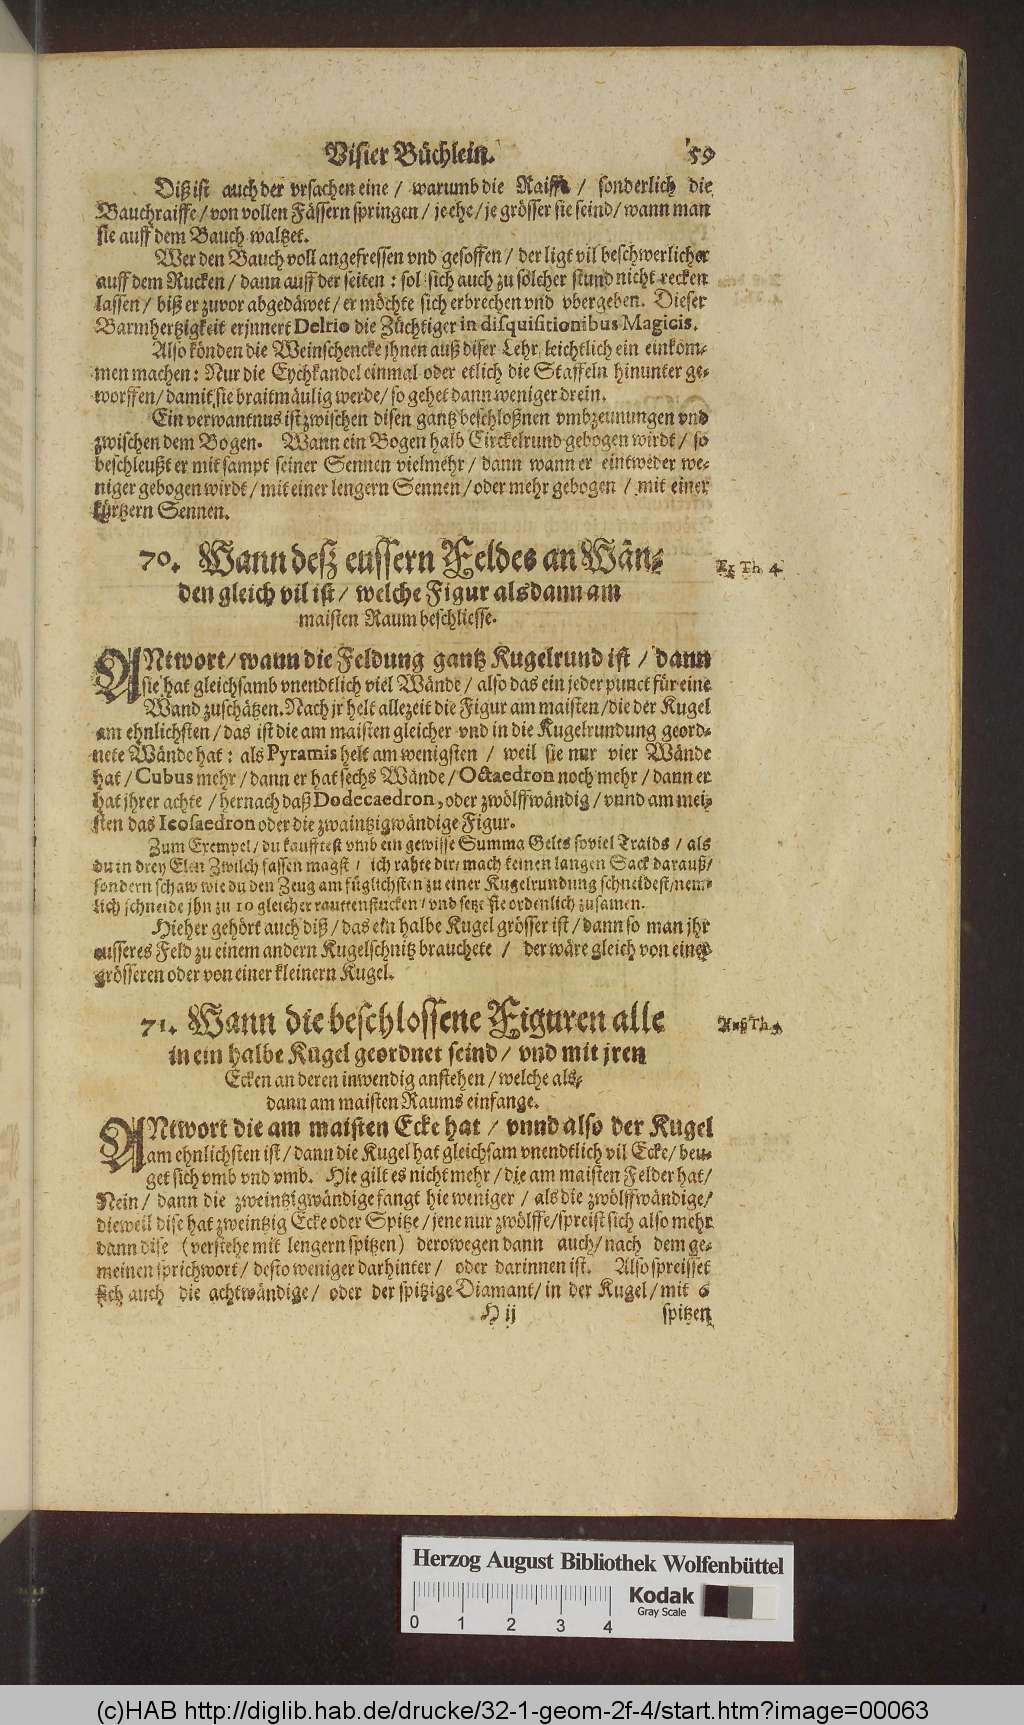 Visier Büchlein. 59
Diß ist auch der vrsachen eine / warumb die Raiffe / sonderlich die
Bauchraiffe / von vollen Fässern springen / je ehe / je grösser sie seind / wann man
sie auff dem Bauch waltzet.
Wer den Bauch voll angefressen vnd gesoffen / der ligt vil beschwerlicher
auff dem Rucken / dann auff der seiten : sol sich auch zu solcher stund nicht recken
lassen / biß er zuvor abgedäwet / er möchte sich erbrechen vnd vbergeben. Dieser
Barmhertzigkeit erjnnert Delrio die Züchtiger in disquisitionibus Magicis.
Also könden die Weinschencke jhnen auß diser Lehr leichtlich ein einkom-
men machen : Nur die Eychkandel einmal oder etlich die Staffeln hinunter ge-
worffen / damit sie braitmäulig werde / so gehet dann weniger drein.
Ein verwantnus ist zwischen disen gantz beschloßnen vmbzeunungen vnd
zwischen dem Bogen. Wann ein Bogen halb Circkelrund gebogen wirdt / so
beschleußt er mit sampt seiner Sennen viel mehr / dann wann er eintweder we-
niger gebogen wirdt / mit einer lengern Sennen / oder mehr gebogen / mit einer
kürtzern Sennen.
70. Wann deß eussern Feldes an Wän-
den gleich vil ist / welche Figur alsdann am
maisten Raum beschliesse.
Ex Th. 4
ANtwort / wann die Feldung gantz Kugelrund ist / dann
sie hat gleichsamb vnendtlich viel Wände / also das ein jeder punct für eine
Wand zuschätzen. Nach jr helt allezeit die Figur am maisten / die der Kugel
am ehnlichsten / das ist die am maisten gleicher vnd in die Kugelrundung geord-
nete Wände hat : als Pyramis helt am wenigsten / weil sie nur vier Wände
hat / Cubus mehr / dann er hat sechs Wände / Octaedron noch mehr / dann er
hat jhrer achte / hernach daß Dodecaedron, oder zwölffwändig / vnnd am mei-
sten das Icosaedron oder die zwaintzigwändige Figur.
Zum Exempel / du kaufftest vmb ein gewisse Summa Gelts soviel Traids / als
du in drey Elen Zwilch fassen magst / ich rahte dir / mach keinen langen Sack darauß /
sondern schaw wie du den Zeug am füglichsten zu einer Kugelrundung schneidest / nem-
lich schneide jhn zu 10 gleicher rauttenstucken / vnd setze sie ordenlich zusamen.
Hieher gehört auch diß / das ein halbe Kugel grösser ist / dann so man jhr
eusseres Feld zu einem andern Kugelschnitz brauchete / der wäre gleich von einer
grösseren oder von einer kleinern Kugel.
71. Wann die beschlossene Figuren alle
in ein halbe Kugel geordnet seind / vnd mit jren
Ecken an deren inwendig anstehen / welche als-
dann am maisten Raums einfange.
Auß Th.
ANtwort die am maisten Ecke hat / vnnd also der Kugel
am ehnlichsten ist / dann die Kugel hat gleichsam vnendtlich vil Ecke / beu-
get sich vmb vnd vmb. Hie gilt es nicht mehr / die am maisten Felder hat /
Nein / dann die zweintzigwändige fangt hie weniger / als die zwölffwändige /
dieweil dise hat zweintzig Ecke oder Spitze / jene nur zwölffe / spreist sich also mehr
dann dise (verstehe mit lengern spitzen) derowegen dann auch / nach dem ge-
meinen sprichwort / desto weniger darhinter / oder darinnen ist. Also spreisset
sich auch die achtwändige / oder der spitzige Diamant / in der Kugel / mit 6
H ij spitzen
Herzog August Bibliothek Wolfenbüttel
0 1 2 3 4
Kodak
Gray Scale
(c)HAB http://diglib.hab.de/drucke/32-1-geom-2f-4/start.htm?image=00063